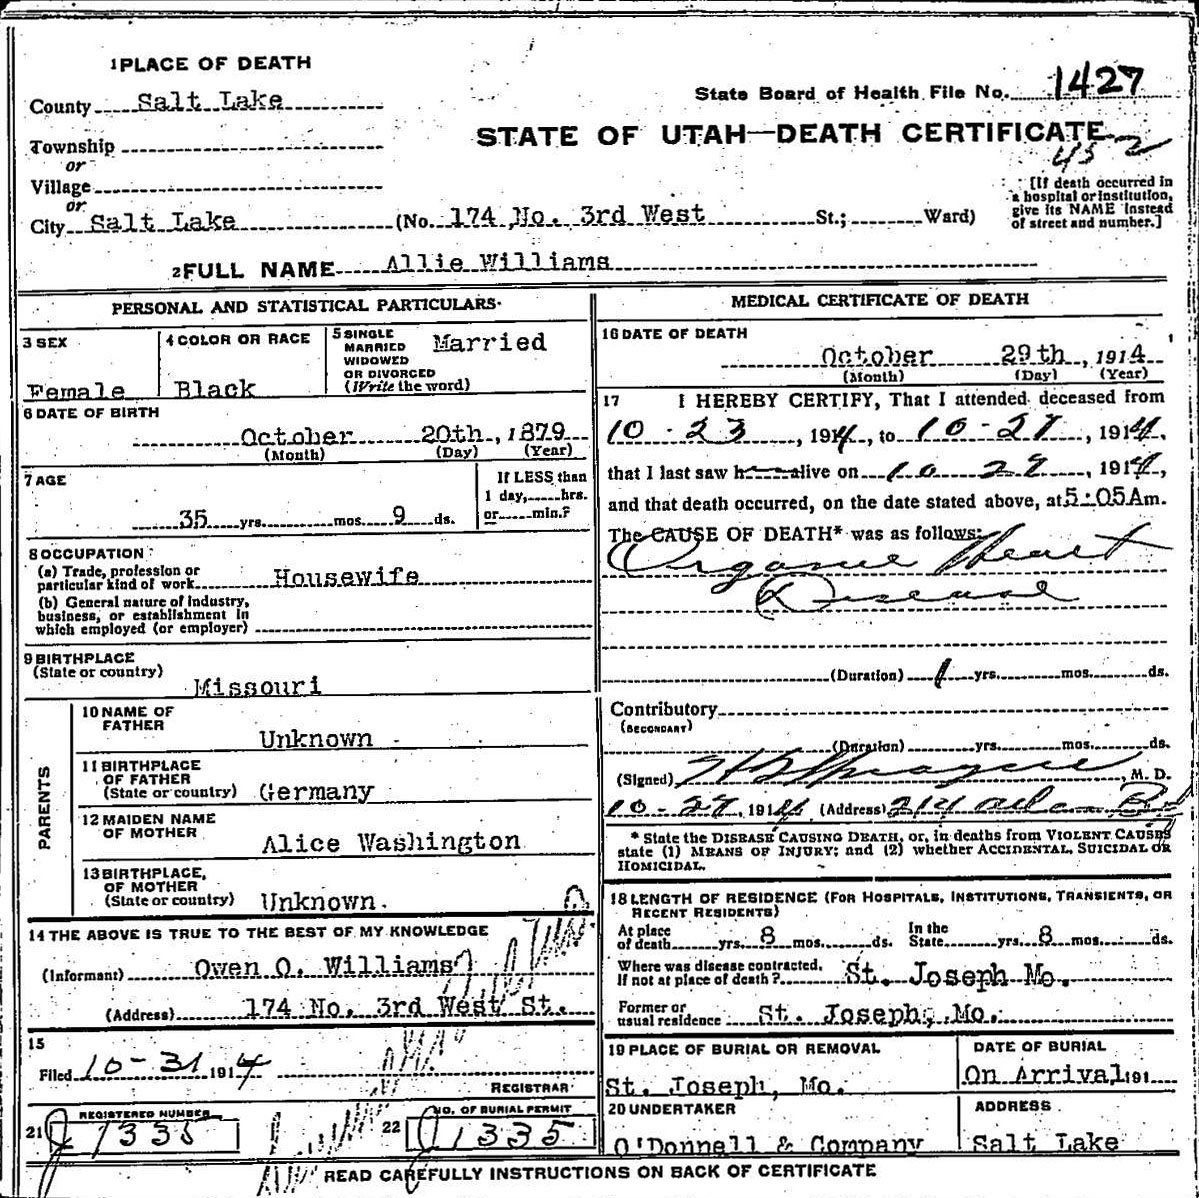 1 PLACE OF DEATH
County Salt Lake
State Board of Health File No. 1427
STATE OF UTAH—DEATH CERTIFICATE
452
Township
or
Village
or
City Salt Lake (No. 174 No. 3rd West St.; Ward)
[If death occurred in
a hospital or institution,
give its NAME instead
of street and number.]
2 FULL NAME Allie Williams
PERSONAL AND STATISTICAL PARTICULARS
3 SEX
Female
4 COLOR OR RACE
Black
5 SINGLE
MARRIED
WIDOWED
OR DIVORCED
(Write the word)
Married
6 DATE OF BIRTH
October 20th, 1879
(Month) (Day) (Year)
7 AGE
35 yrs. mos. 9 ds.
If LESS than
1 day, hrs.
or min.?
8 OCCUPATION
(a) Trade, profession or
particular kind of work Housewife
(b) General nature of industry,
business, or establishment in
which employed (or employer)
9 BIRTHPLACE
(State or country)
Missouri
PARENTS
10 NAME OF
FATHER
Unknown
11 BIRTHPLACE
OF FATHER
(State or country) Germany
12 MAIDEN NAME
OF MOTHER
Alice Washington
13 BIRTHPLACE,
OF MOTHER
(State or country) Unknown.
14 THE ABOVE IS TRUE TO THE BEST OF MY KNOWLEDGE
(Informant) Owen O. Williams
(Address) 174 No. 3rd West St.
15
Filed 10-31 1914
REGISTRAR
21 REGISTERED NUMBER
J 1335
22 NO. OF BURIAL PERMIT
J 1335
MEDICAL CERTIFICATE OF DEATH
16 DATE OF DEATH
October 29th, 1914
(Month) (Day) (Year)
17 I HEREBY CERTIFY, That I attended deceased from
10-23, 1914, to 10-29, 1914,
that I last saw h alive on 10 29, 1914,
and that death occurred, on the date stated above, at 5:05A m.
The CAUSE OF DEATH* was as follows:
Organic Heart
Disease
(Duration) 1 yrs. mos. ds.
Contributory
(SECONDARY)
(Duration) yrs. mos. ds.
(Signed) Sprague, M. D.
10-29, 1914 (Address) 214
* State the DISEASE CAUSING DEATH, or, in deaths from VIOLENT CAUSES
state (1) MEANS OF INJURY; and (2) whether ACCIDENTAL, SUICIDAL OR
HOMICIDAL.
18 LENGTH OF RESIDENCE (FOR HOSPITALS, INSTITUTIONS, TRANSIENTS, OR
RECENT RESIDENTS)
At place
of death yrs. 8 mos. ds.
In the
State yrs. 8 mos. ds.
Where was disease contracted,
If not at place of death? St. Joseph Mo.
Former or
usual residence St. Joseph, Mo.
19 PLACE OF BURIAL OR REMOVAL
St. Joseph, Mo.
DATE OF BURIAL
On Arrival 191
20 UNDERTAKER
O'Donnell & Company
ADDRESS
Salt Lake
READ CAREFULLY INSTRUCTIONS ON BACK OF CERTIFICATE